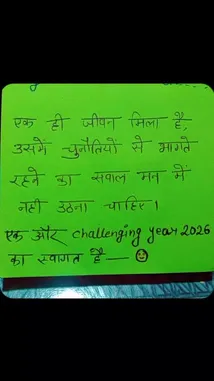 एक ही जीवन मिला है,
उसमें चुनौतियों से भागते
रहने का सवाल मन में
नही उठना चाहिए।
एक और challenging year 2026
का स्वागत है — 🙂